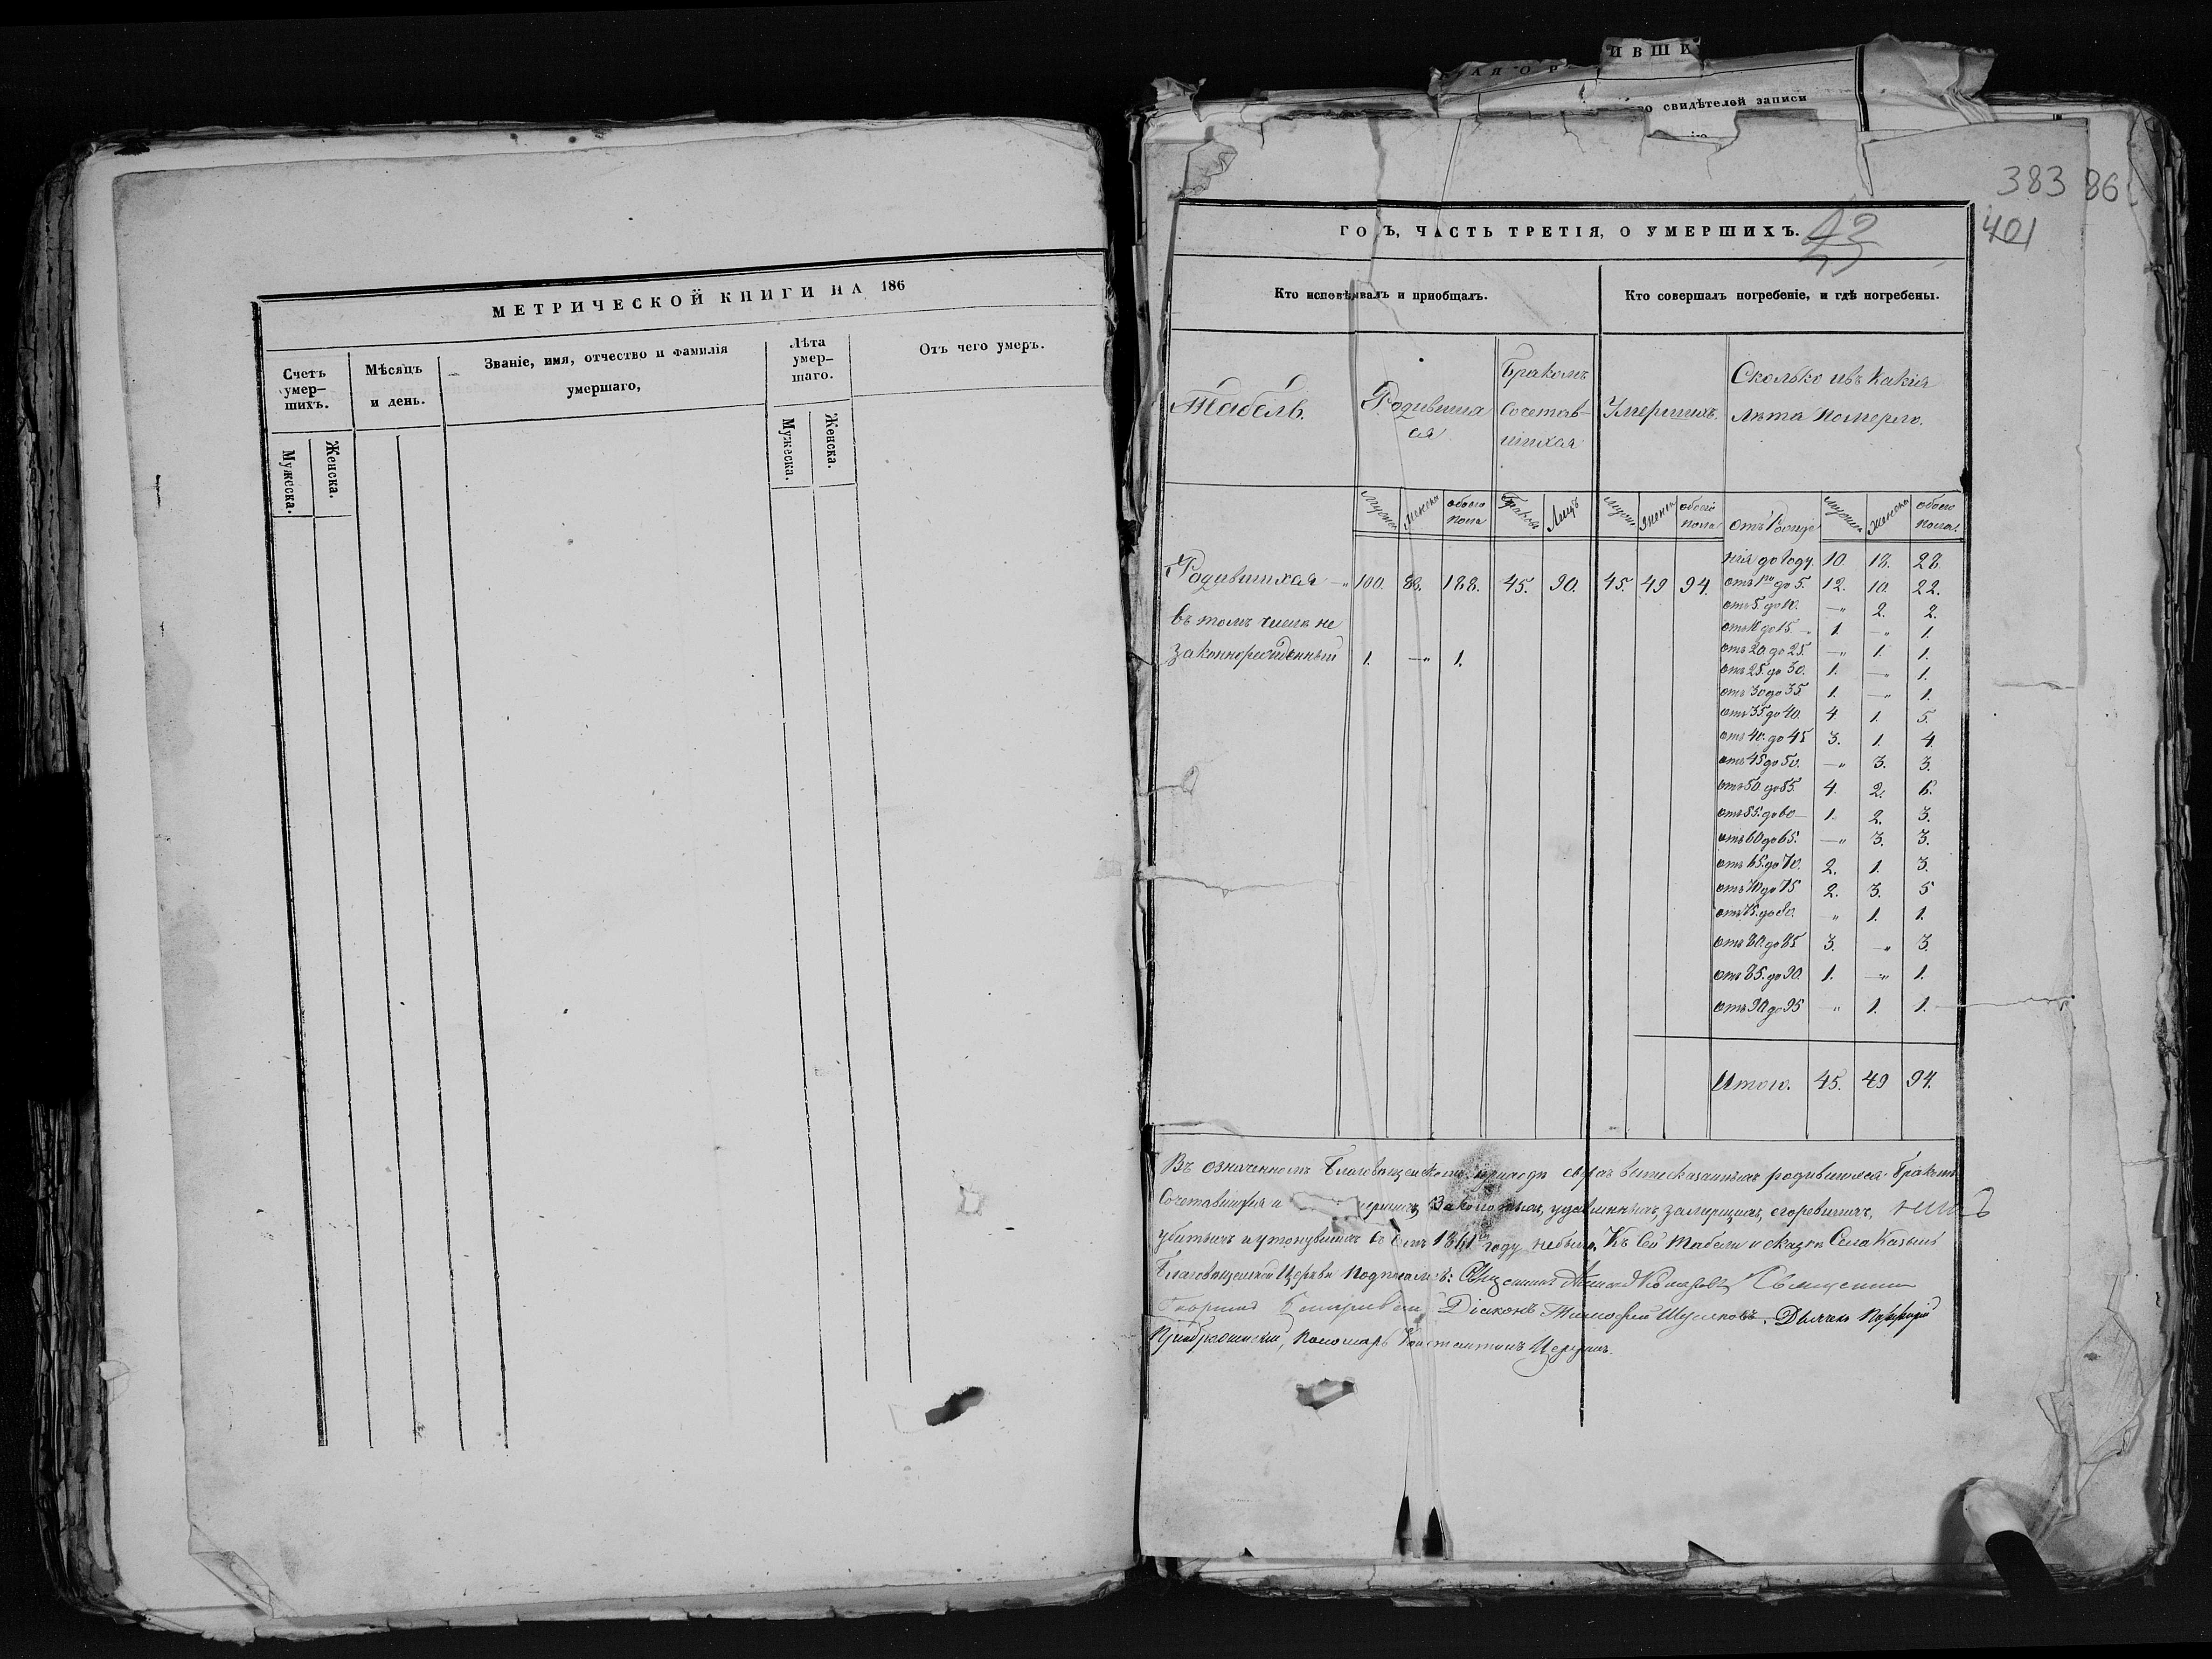 ИВШИ
во свидѣтелей записи
383 86
401
МЕТРИЧЕСКОЙ КНИГИ НА 186
Счетъ умер-шихъ.
Мужеска.
Женска.
Мѣсяцъ и день.
Званіе, имя, отчество и фамилія умершаго,
Лѣта умер-шаго.
Мужеска.
Женска.
Отъ чего умеръ.
ГОДЪ, ЧАСТЬ ТРЕТІЯ, О УМЕРШИХЪ.
Кто исповѣдывалъ и пріобщалъ.
Кто совершалъ погребеніе, и гдѣ погребены.
Табель.
Родивших
ся
Бракомъ
сочетав-
шихся
Умершихъ.
Сколько изъ какихъ
лѣта померло.
мужеска женска обоего пола
Браковъ Лицъ
мужеска женска обоего пола
отъ Рожде
мужеска женска обоего пола
нія до году. 10. 18. 28
Родившихся 100. 88. 188. 45. 90. 45. 49 94. отъ 1го до 5. 12. 10. 22.
въ томъ числѣ не отъ 5 до 10. —„ 2. 2.
отъ 10 до 15. 1. —„ 1.
законнорожденный 1. —„ 1. отъ 20 до 25. —„ 1. 1.
отъ 25. до 30. 1. —„ 1.
отъ 30 до 35. 1. —„ 1.
отъ 35. до 40. 4. 1. 5.
отъ 40. до 45 3. 1. 4.
отъ 45 до 50. —„ 3. 3.
отъ 50. до 55. 4. 2. 6.
отъ 55. до 60 — 1. 2. 3.
отъ 60 до 65. —„ 3. 3.
отъ 65. до 70. 2. 1. 3.
отъ 70 до 75 2. 3. 5
отъ 75. до 80. „ 1. 1.
отъ 80. до 85 3. —„ 3.
отъ 85. до 90. 1. —„ 1.
отъ 90 до 95 —„ 1. 1.
Итого. 45. 49 94.
Въ означенномъ Благовѣщенскомъ приходѣ сверхъ вышесказанныхъ родившихся бракомъ
сочетавшихся и удавленныхъ, замерзшихъ, сгорѣвшихъ,
убитыхъ и утонувшихъ въ семъ 1861 году небыло. Къ сей табели и сказкѣ Села
Благовѣщенской Церкви подписались: Священникъ Священникъ
Діаконъ Тимофей Дьячекъ
Преображенскій, Пономарь Константинъ